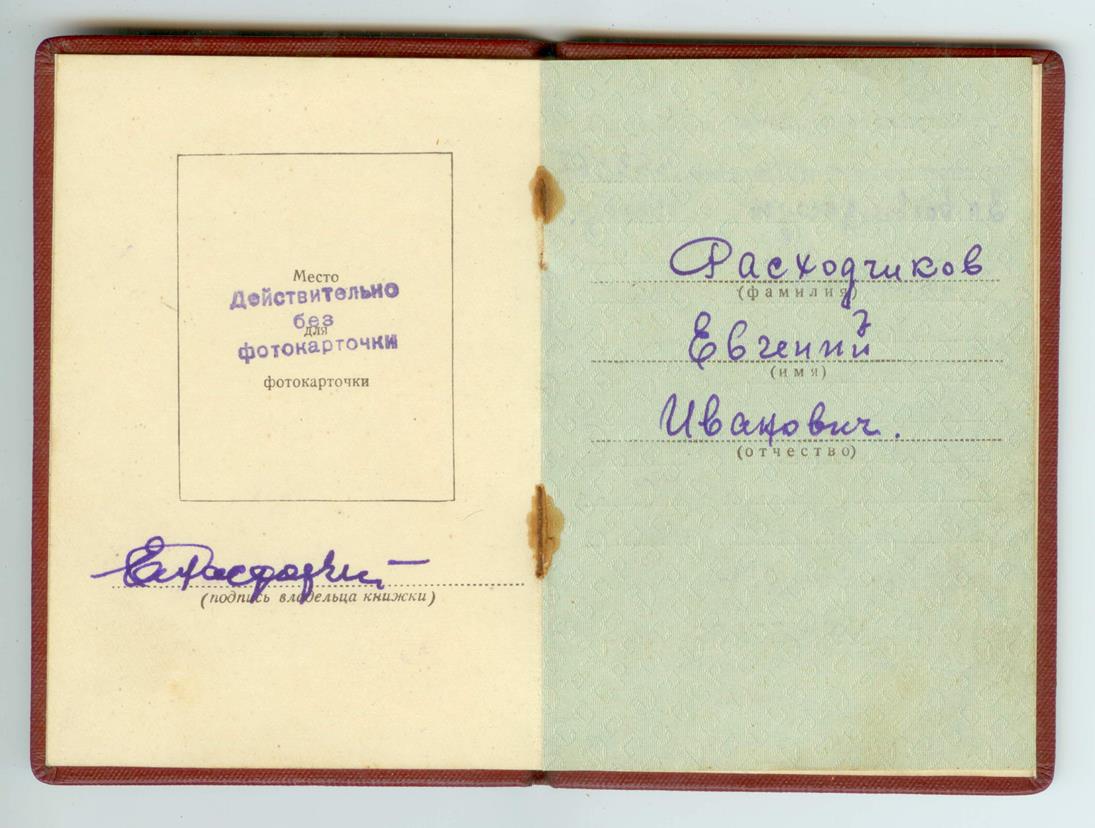 Место
Действительно
без
для
фотокарточки
фотокарточки
(подпись владельца книжки)
Расходчиков
(фамилия)
Евгений
(имя)
Иванович.
(отчество)